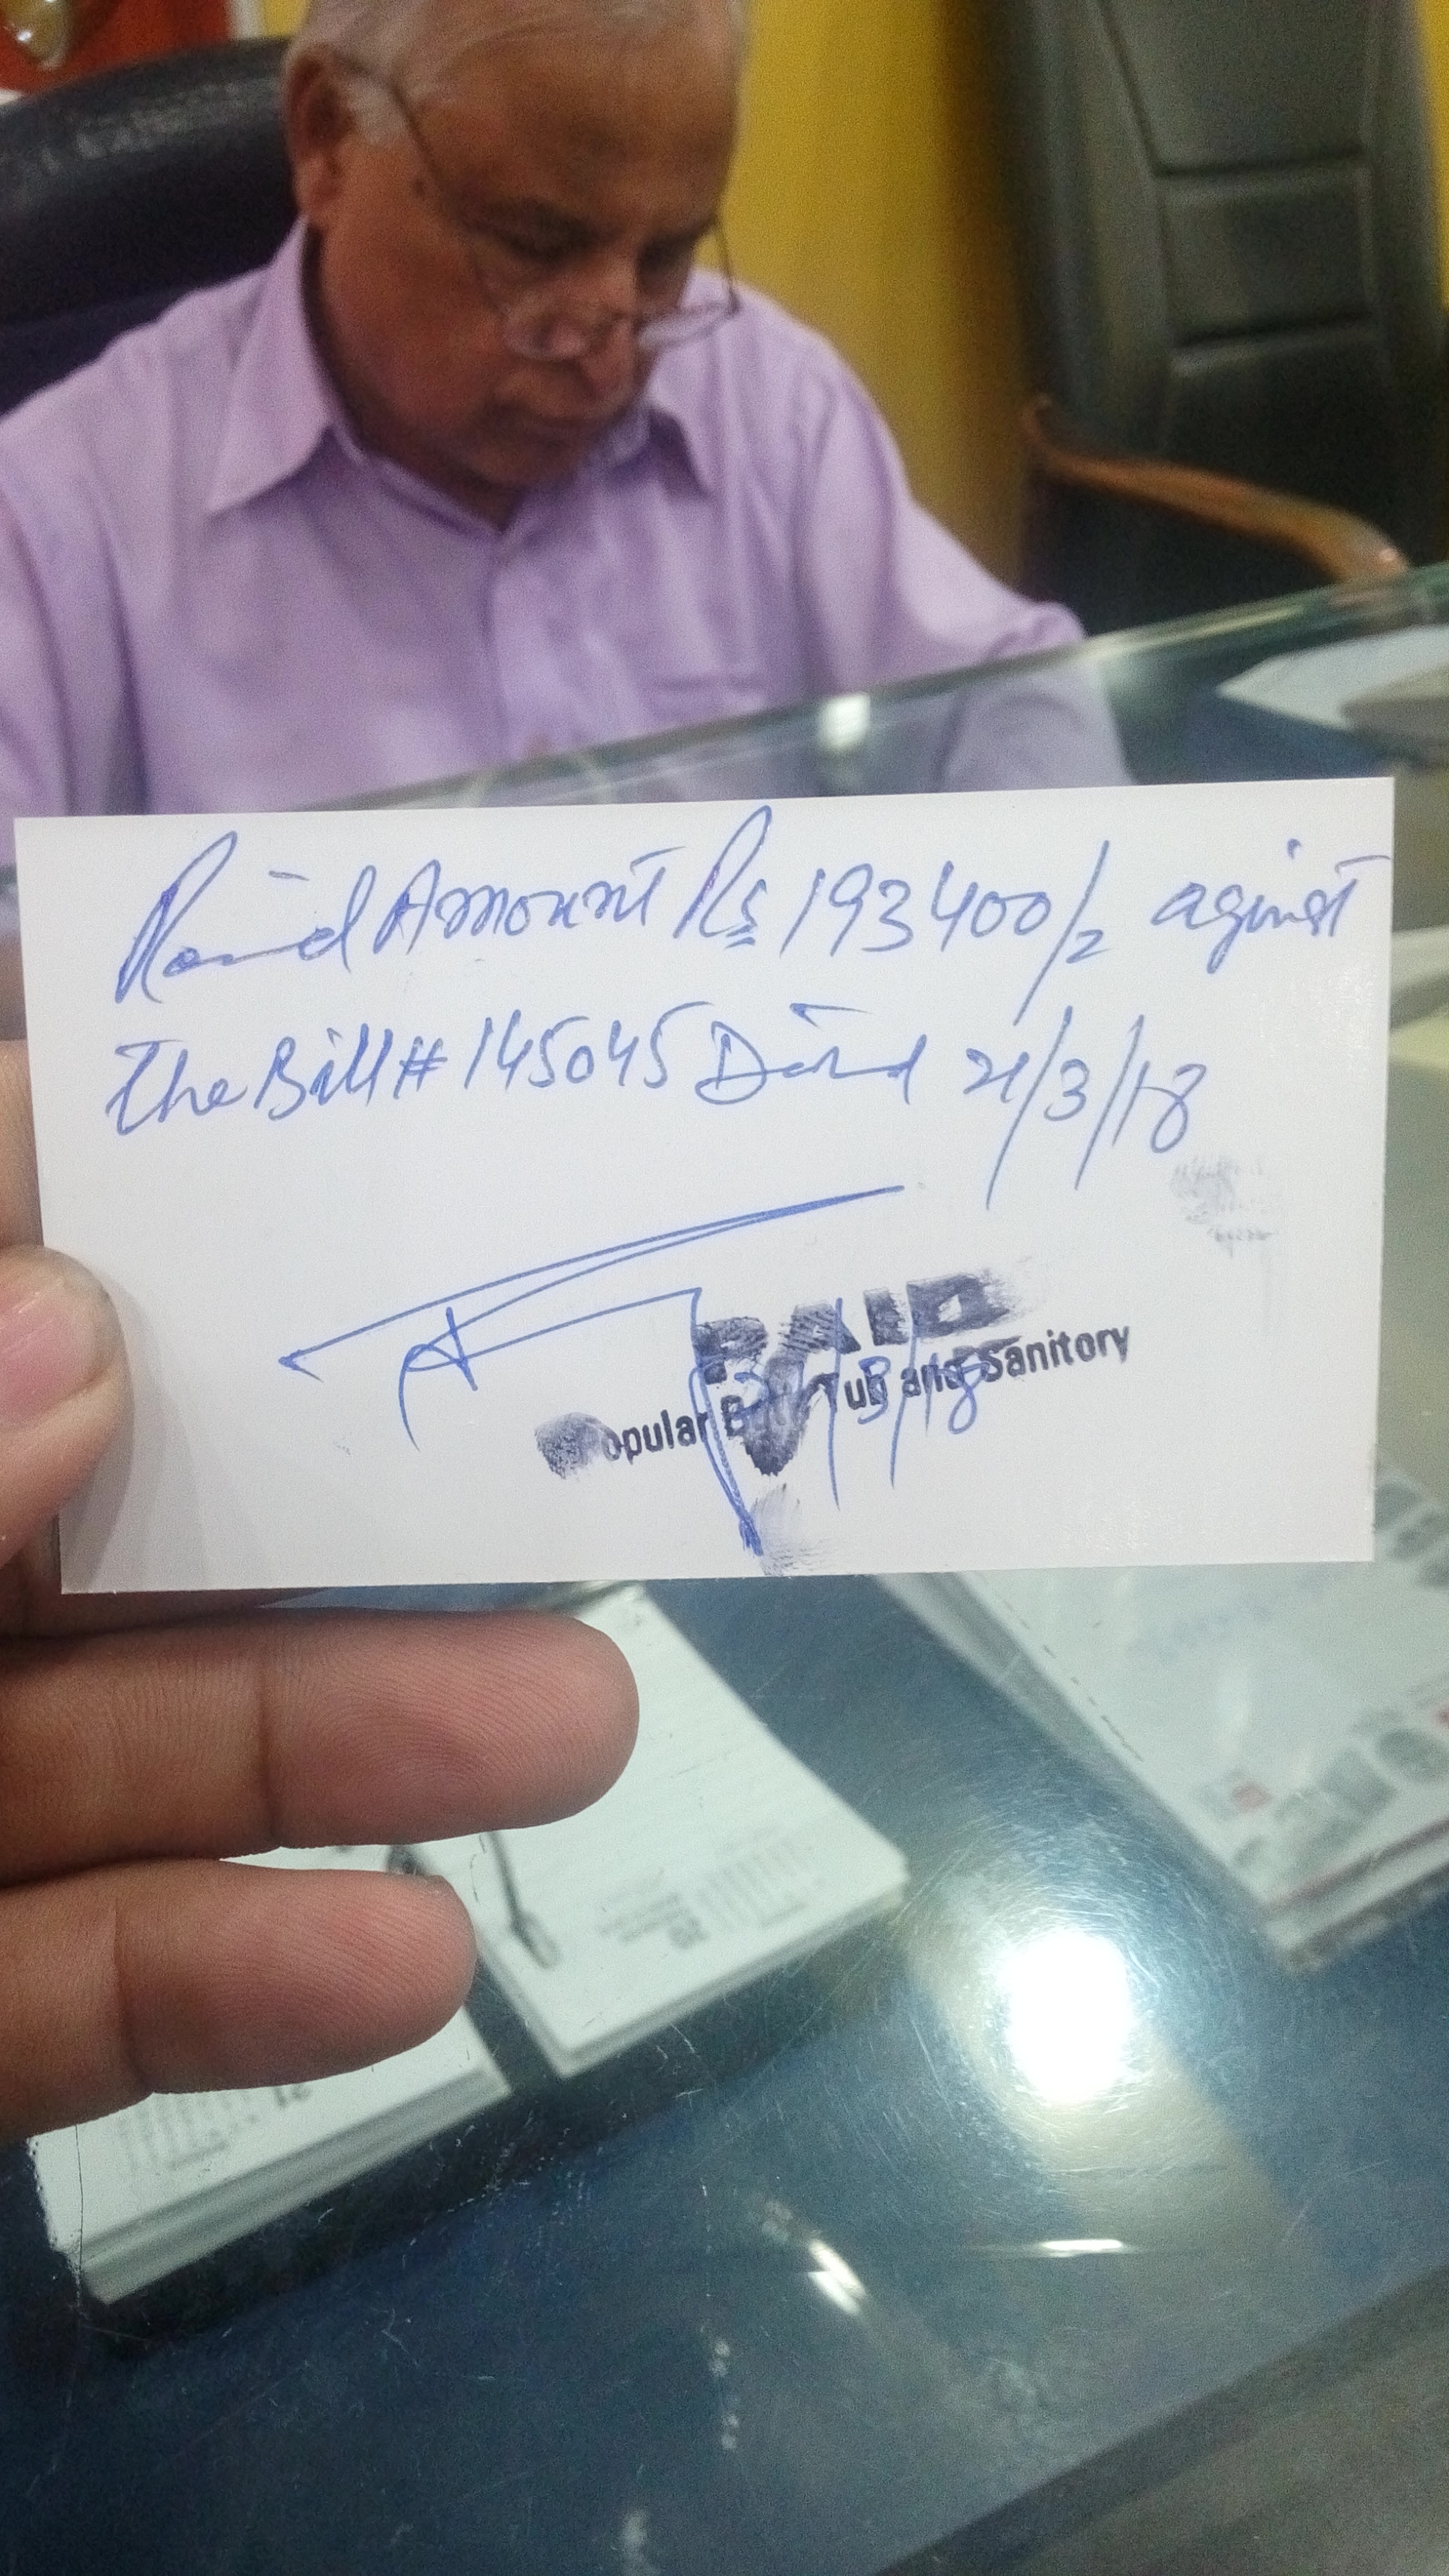 Recid Amount Rs 193400/= aginst
the Bill # 145045 Dated 21/3/18
PAID
Popular Bath Tub and Sanitory
/3/18
20
21